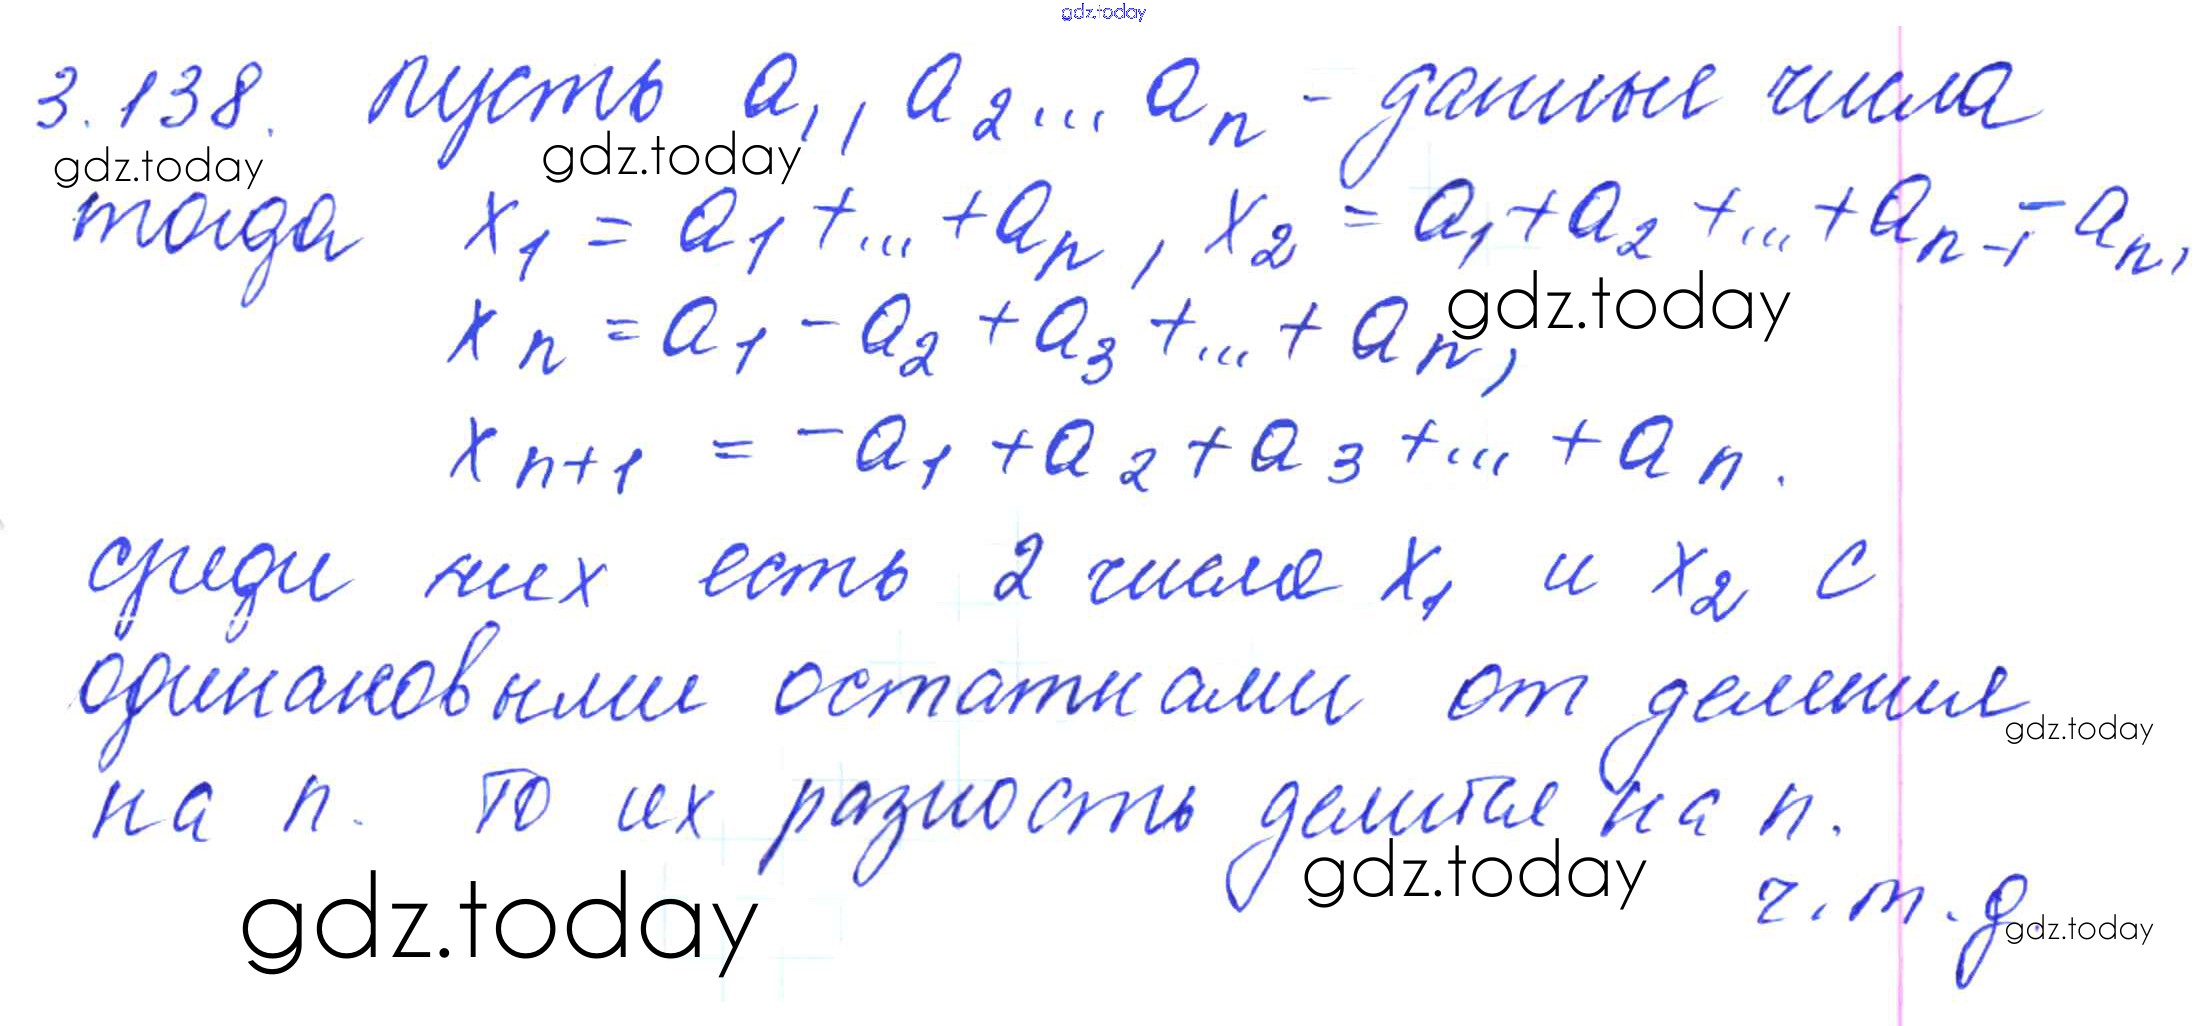 gdz.today
3.138. пусть a₁, a₂... aₙ - данные числа
gdz.today gdz.today
тогда x₁ = a₁ + ... + aₙ, x₂ = a₁ + a₂ + ... + aₙ₋₁ - aₙ,
gdz.today
xₙ = a₁ - a₂ + a₃ + ... + aₙ,
xₙ₊₁ = -a₁ + a₂ + a₃ + ... + aₙ.
среди них есть 2 числа x₁ и x₂ с
одинаковыми остатками от деления
gdz.today
на n. То их разность делится на n.
gdz.today
ч.т.д.
gdz.today
gdz.today